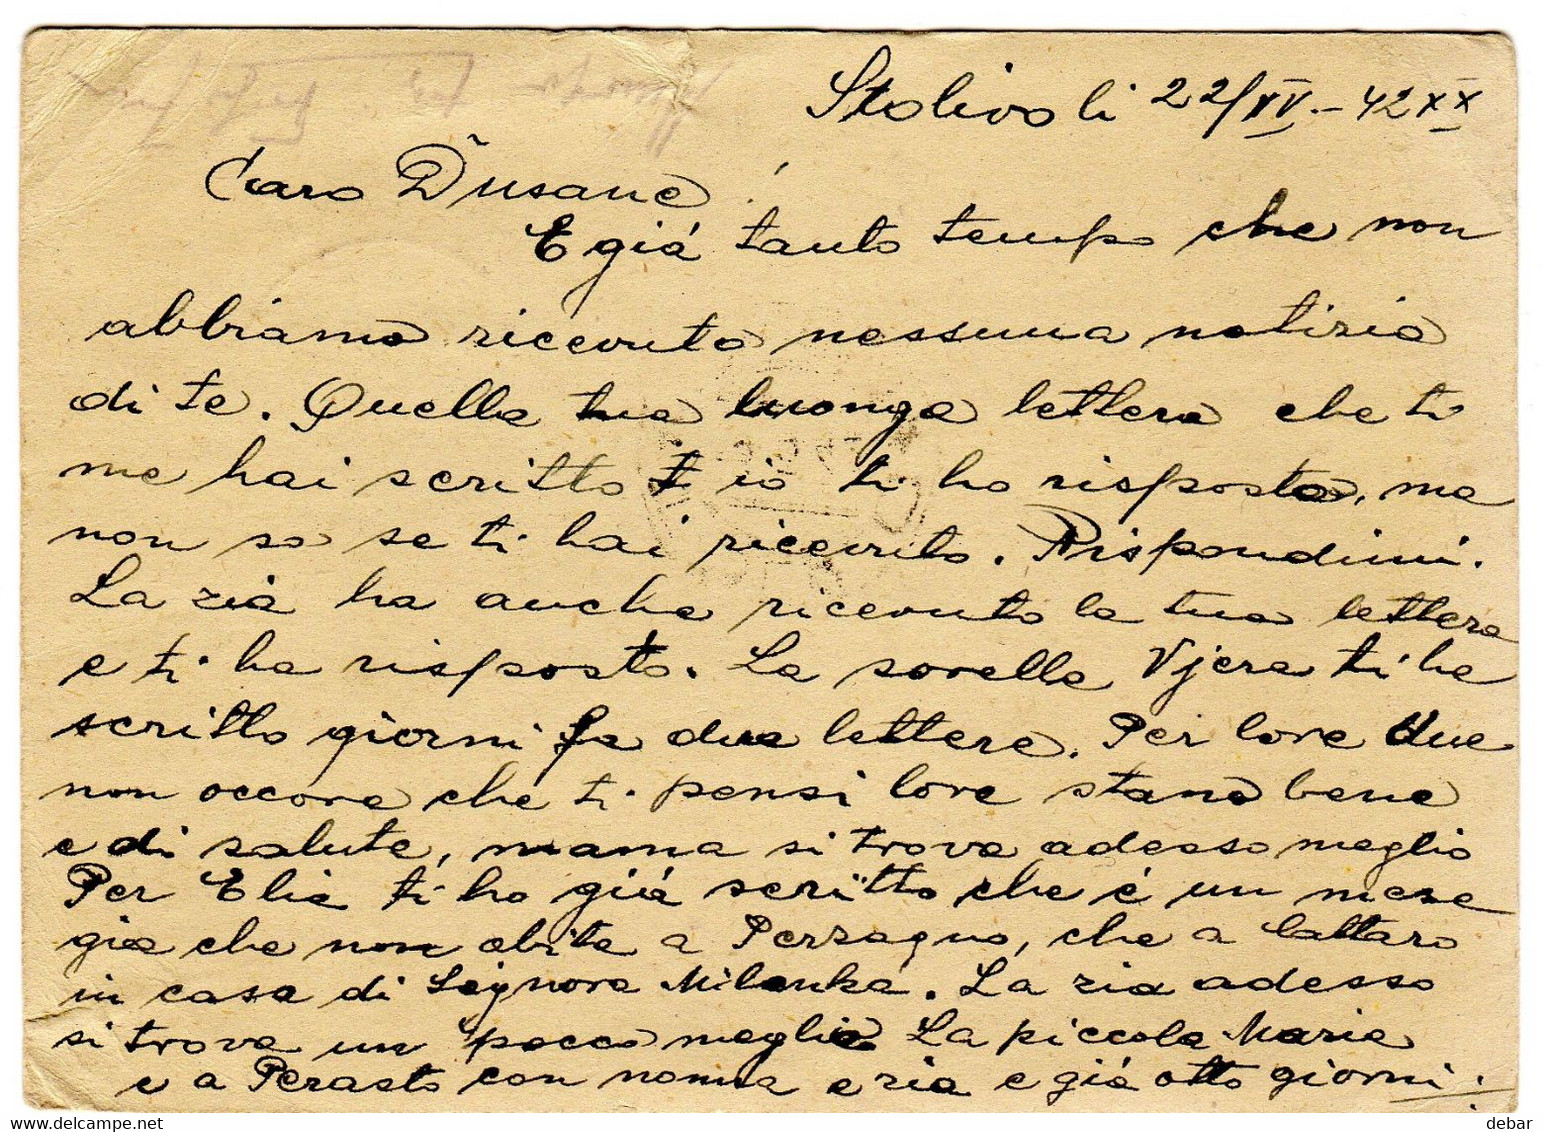 Stolivo li 22/IV.-42 XX
Caro Dusane!
E giá tanto tempo che non
abbiamo ricevuto nessuna notizia
di te. Quella tua luonga lettera che ti
me hai scritto io ti ho risposto, ma
non so se ti hai ricevuto. Rispondimi.
La zia ha anche ricevuto la tua lettera
e ti ha risposto. La sorella Vjera ti ha
scritto giorni fa due lettere. Per lore due
non occore che ti pensi lore stano bene
e di salute, mama si trova adesso meglio
Per Elia ti ho giá scritto che é un mese
gia che non abita a Perzagno, che a Cattaro
in casa di Signora Milenka. La zia adesso
si trova un pocco meglio La piccola Maria
e a Perasto con nonna e zia e giá otto giorni.
debar